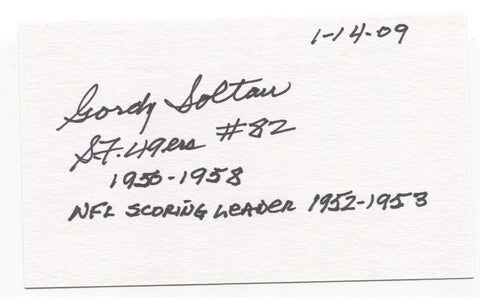 1-14-09
Gordy Soltau
SF. 49ers #82
1950-1958
NFL SCORING LEADER 1952-1953